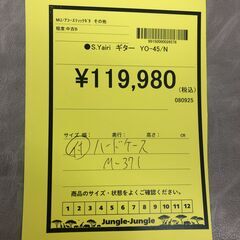 MU-アコースティックギタ その他
程度:中古B
●S.Yairi ギター YO-45/N
¥119,980
(税込)
080925
サイズ 幅: 奥行: 高さ: cm
付 ハードケース
M-371
商品のサイズ・状態をよくご確認ください。
1 2 3 4 5 6 7 8 9 10 11 12
Jungle-Jungle